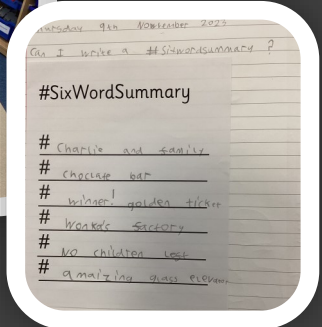 Thursday 9th November 2023
Can I write a #Sixwordsummary ?
#SixWordSummary
# Charlie and family
# choclate bar
# winner! golden ticket
# Wonka's factory
# No children lest
# amaizing glass elevator